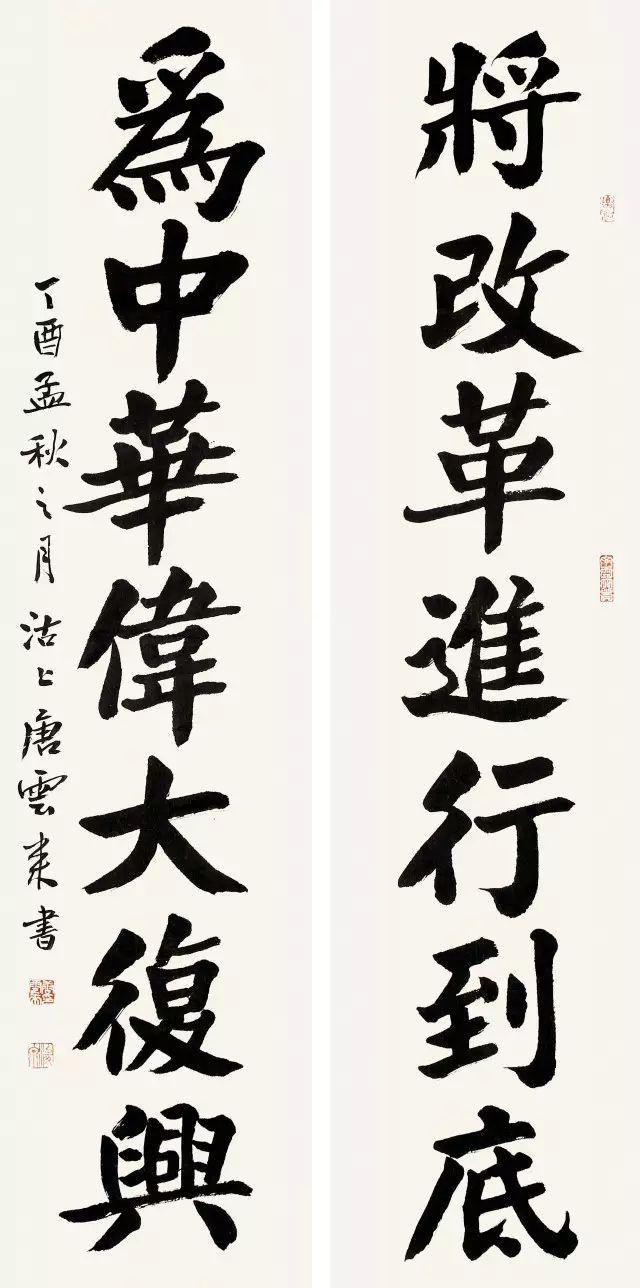 將改革進行到底
為中華偉大復興
丁酉孟秋之月沽上唐雲来書